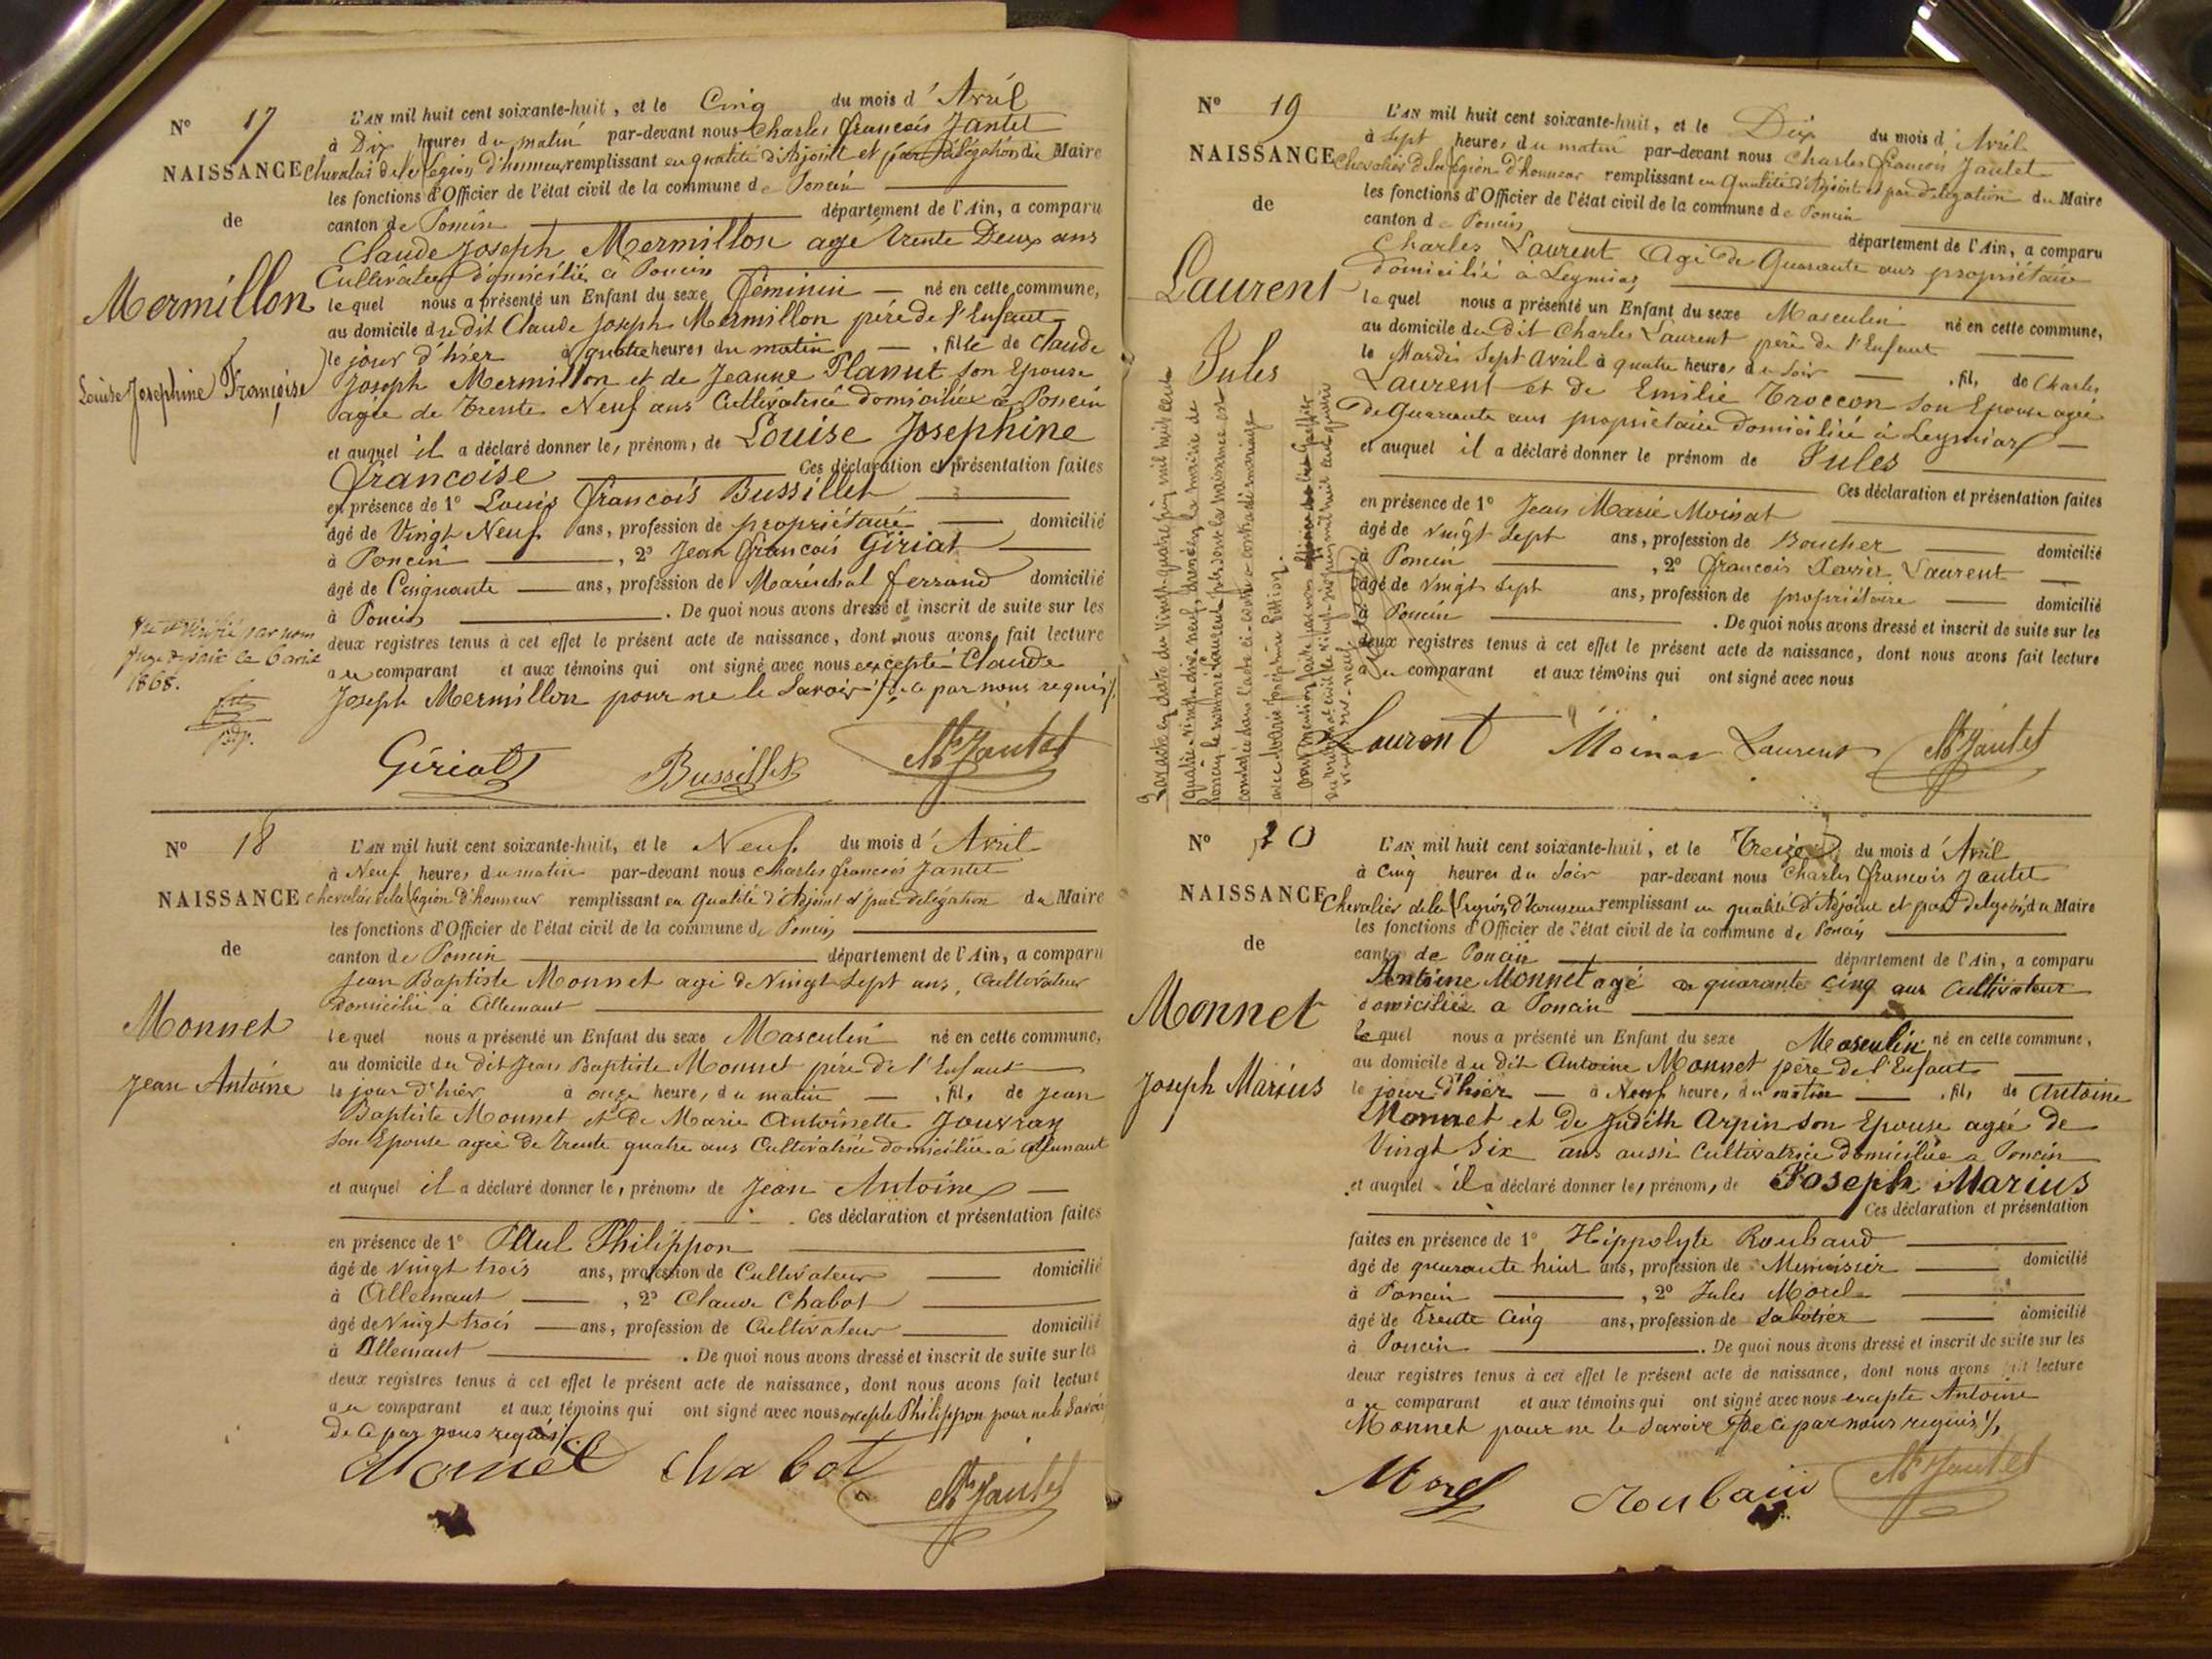 N° 17
NAISSANCE
de
Mermillon
Louise Josephine Françoise
L'AN mil huit cent soixante-huit, et le Cinq du mois d'Avril
à Dix heures du matin par-devant nous Charles françois Jantet
Chevalier de la Légion d'honneur remplissant en qualité d'Adjoint et par délégation du Maire
les fonctions d'Officier de l'état civil de la commune de Poncin
canton de Poncin département de l'Ain, a comparu
Claude Joseph Mermillon agé trente Deux ans
Cultivateur domicilié à Poncin
lequel nous a présenté un Enfant du sexe féminin né en cette commune,
au domicile du dit Claude Joseph Mermillon père de l'Enfant
le jour d'hier à quatre heures du matin, fille de Claude
Joseph Mermillon et de Jeanne Planut son Epouse
agée de trente Neuf ans Cultivatrice domiciliée à Poncin
et auquel il a déclaré donner les prénoms de Louise Josephine
françoise Ces déclaration et présentation faites
en présence de 1° Louis françois Bussillet
âgé de Vingt Neuf ans, profession de propriétaire domicilié
à Poncin, 2° Jean françois Giriat
âgé de Cinquante ans, profession de Maréchal ferrand domicilié
à Poncin. De quoi nous avons dressé et inscrit de suite sur les
deux registres tenus à cet effet le présent acte de naissance, dont nous avons fait lecture
au comparant et aux témoins qui ont signé avec nous excepté Claude
Joseph Mermillon pour ne le Savoir de ce par nous requis
Vu et vérifié par nous
Juge de paix ce 6 avril
1868.
Giriat Bussillet Jantet
N° 18
NAISSANCE
de
Monnet
Jean Antoine
L'AN mil huit cent soixante-huit, et le Neuf du mois d'Avril
à Neuf heures du matin par-devant nous Charles françois Jantet
Chevalier de la Légion d'honneur remplissant en qualité d'Adjoint et par délégation du Maire
les fonctions d'Officier de l'état civil de la commune de Poncin
canton de Poncin département de l'Ain, a comparu
Jean Baptiste Monnet agé de Vingt Sept ans, Cultivateur
domicilié à Allemant
lequel nous a présenté un Enfant du sexe Masculin né en cette commune,
au domicile du dit Jean Baptiste Monnet père de l'Enfant
le jour d'hier à onze heures du matin, fils de Jean
Baptiste Monnet et de Marie Antoinette Jouvray
Son Epouse agée de trente quatre ans Cultivatrice domiciliée à Allemant
et auquel il a déclaré donner les prénoms de Jean Antoine
Ces déclaration et présentation faites
en présence de 1° Paul Philippon
âgé de Vingt trois ans, profession de Cultivateur domicilié
à Allemant, 2° Claude Chabot
âgé de Vingt trois ans, profession de Cultivateur domicilié
à Allemant. De quoi nous avons dressé et inscrit de suite sur les
deux registres tenus à cet effet le présent acte de naissance, dont nous avons fait lecture
au comparant et aux témoins qui ont signé avec nous excepté Philippon pour ne le Savoir
De ce par nous requis
Monnet Chabot Jantet
N° 19
NAISSANCE
de
Laurent
Jules
L'AN mil huit cent soixante-huit, et le Dix du mois d'Avril
à Sept heures du matin par-devant nous Charles françois Jantet
Chevalier de la Légion d'honneur remplissant en Qualité d'Adjoint et par délégation du Maire
les fonctions d'Officier de l'état civil de la commune de Poncin
canton de Poncin département de l'Ain, a comparu
Charles Laurent Agé de Quarante ans propriétaire
domicilié à Leymiat
lequel nous a présenté un Enfant du sexe Masculin né en cette commune,
au domicile du dit Charles Laurent père de l'Enfant
le Mardi Sept Avril à quatre heures du Soir, fils de Charles
Laurent et de Emilie Troccon son Epouse agée
de Quarante ans propriétaire domiciliée à Leymiat
et auquel il a déclaré donner le prénom de Jules
Ces déclaration et présentation faites
en présence de 1° Jean Marie Moinat
âgé de vingt Sept ans, profession de Boucher domicilié
à Poncin, 2° françois Xavier Laurent
âgé de Vingt Sept ans, profession de propriétaire domicilié
à Poncin. De quoi nous avons dressé et inscrit de suite sur les
deux registres tenus à cet effet le présent acte de naissance, dont nous avons fait lecture
au comparant et aux témoins qui ont signé avec nous
Par acte en date du vingt-quatre juin mil huit cent
quatre-vingt-dix-neuf, dressé en la mairie de
Poncin, le nommé Laurent Jules dont la naissance est
constatée dans l'acte ci-contre a contracté mariage
avec Marie Joséphine
Laurent Moinat Laurent Jantet
N° 20
NAISSANCE
de
Monnet
Joseph Marius
L'AN mil huit cent soixante-huit, et le Treize du mois d'Avril
à Cinq heures du Soir par-devant nous Charles françois Jantet
Chevalier de la Légion d'honneur remplissant en qualité d'Adjoint et par délégation du Maire
les fonctions d'Officier de l'état civil de la commune de Poncin
canton de Poncin département de l'Ain, a comparu
Antoine Monnet agé de quarante cinq ans Cultivateur
domicilié a Poncin
lequel nous a présenté un Enfant du sexe Masculin né en cette commune,
au domicile du dit Antoine Monnet père de l'Enfant
le jour d'hier à Neuf heures du matin, fils de Antoine
Monnet et de Judith Arpin son Epouse agée de
Vingt Six ans aussi Cultivatrice domiciliée a Poncin
et auquel il a déclaré donner les prénoms de Joseph Marius
Ces déclaration et présentation
faites en présence de 1° Hippolyte Roubaud
âgé de quarante huit ans, profession de Menuisier domicilié
à Poncin, 2° Jules Morel
âgé de Trente Cinq ans, profession de Sabotier domicilié
à Poncin. De quoi nous avons dressé et inscrit de suite sur les
deux registres tenus à cet effet le présent acte de naissance, dont nous avons fait lecture
au comparant et aux témoins qui ont signé avec nous excepté Antoine
Monnet pour ne le Savoir De ce par nous requis
Morel Roubaud Jantet